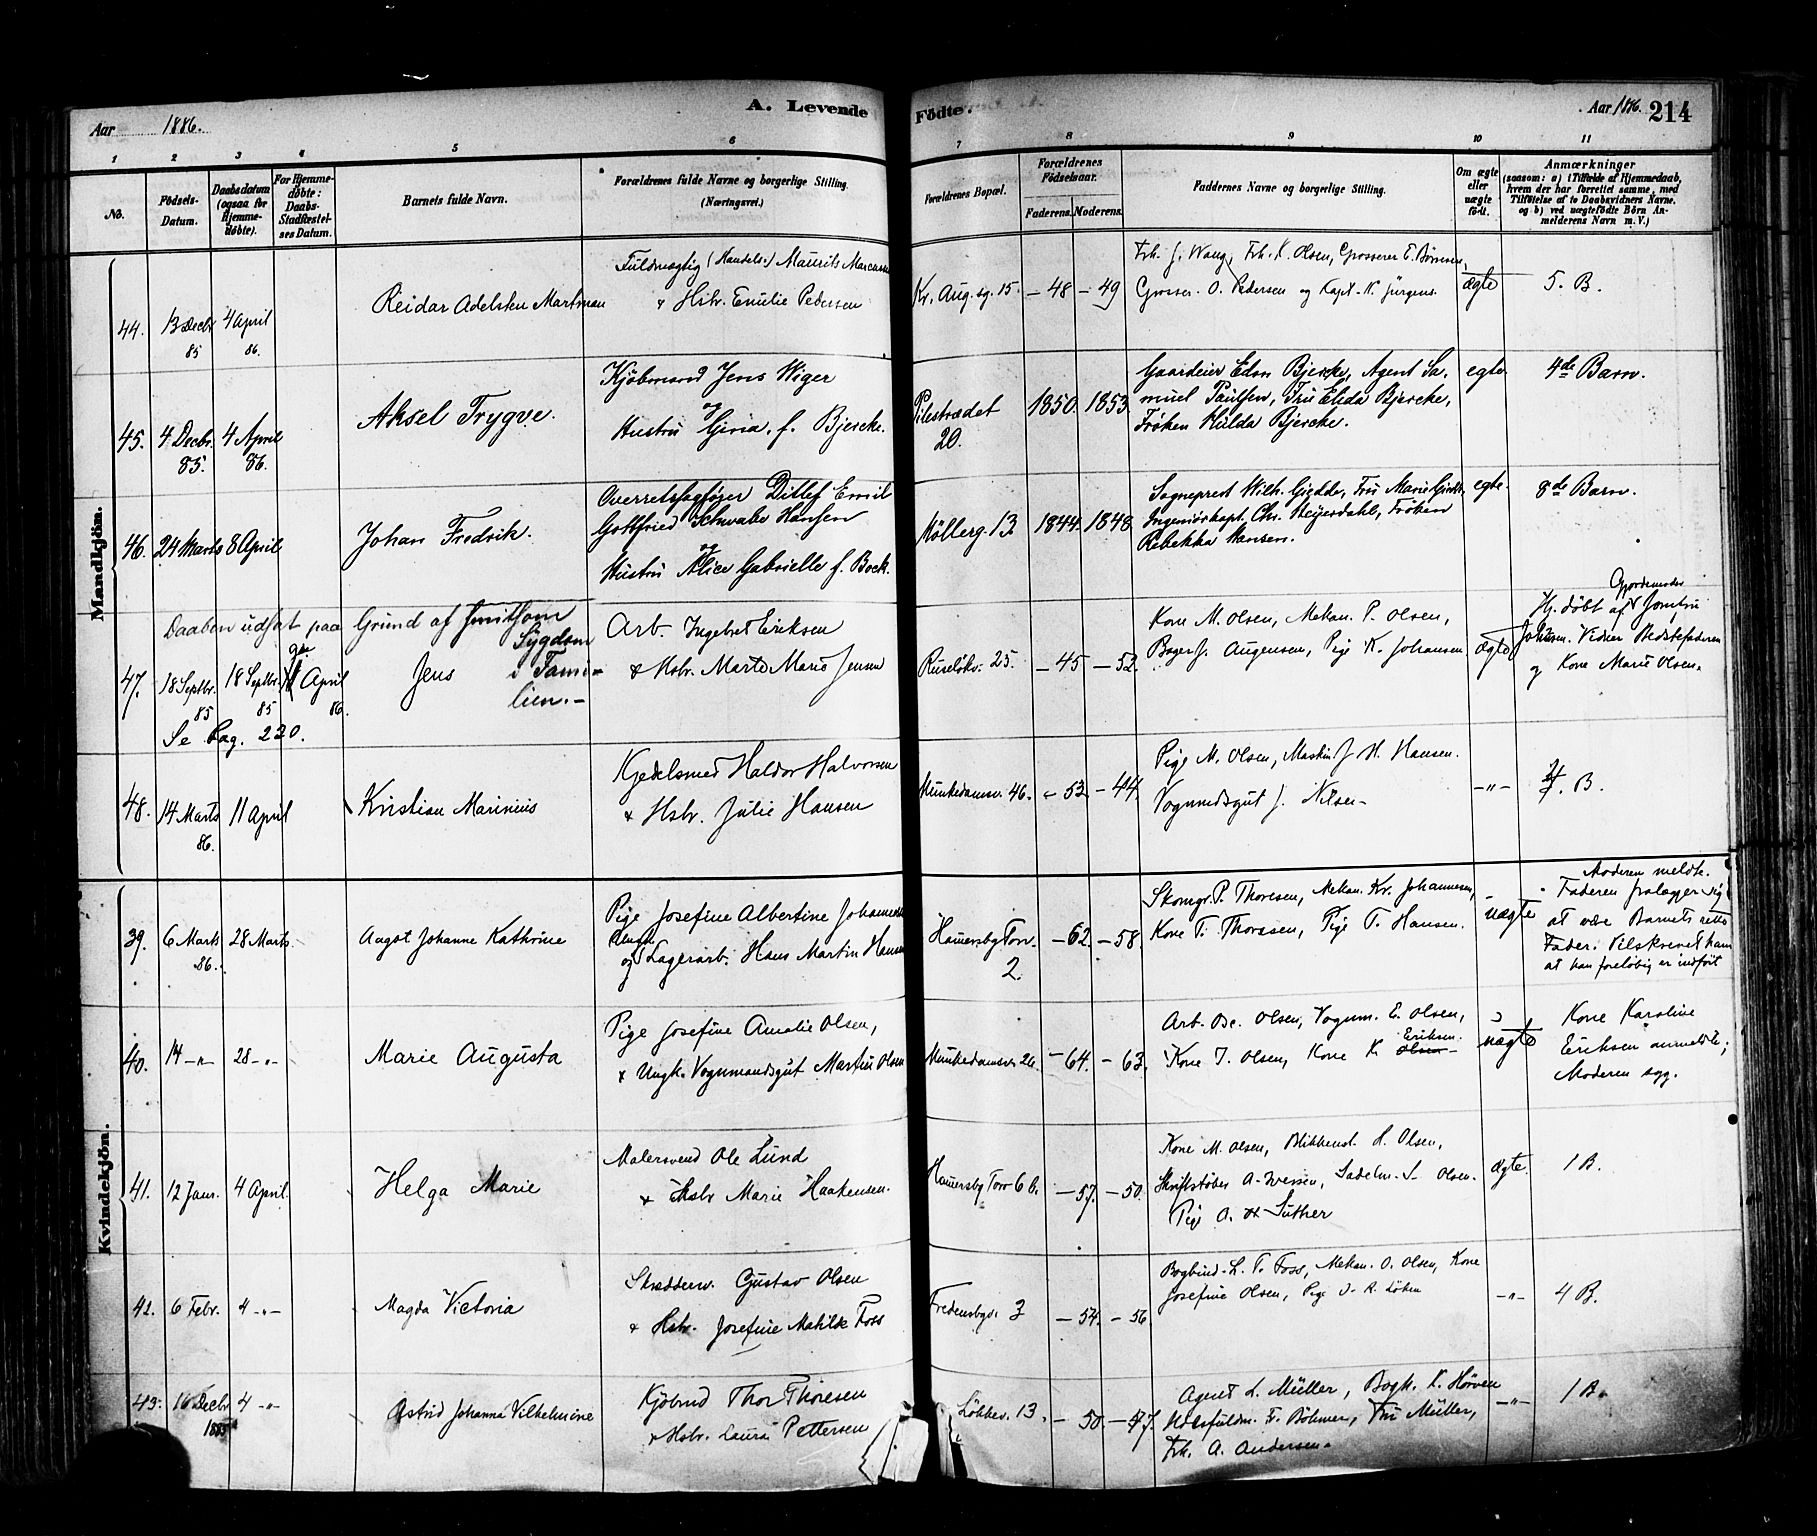 A. Levende Fødte.
Aar 1886.
Aar 1886. 214
1 2 3 4 5 6 7 8 9 10 11
No.
Fødsels-Datum.
Daabsdatum (ogsaa for Hjemmedøbte).
For Hjemmedøbte: Daabs-Stadfæstelses Datum.
Barnets fulde Navn.
Forældrenes fulde Navne og borgerlige Stilling. (Næringsvei.)
Forældrenes Bopæl.
Forældrenes Fødselsaar.
Faderens. Moderens.
Faddernes Navne og borgerlige Stilling.
Om ægte eller uægte født.
Anmærkninger
(saasom: a) i Tilfælde af Hjemmedaab, hvem der har forrettet samme, med Tilføielse af to Daabsvidners Navne, og b) ved uægtefødte Børn Anmelderens Navn m. V.)
Mandkjøn.
44. 13 Decbr 85 4 April 86. Reidar Adelsten Martman
Fuldmægtig (Handels.) Maurits Marcussen
& Hstr. Emilie Pedersen
Kr. Aug. sg. 15. – 48 – 49
Frk. J. Wang, Frk. K. Olsen, Grosserer E. Børresen,
Grosser. O. Pedersen og Kapt. K. Jürgens.
ægte 5. B.
45. 4 Decbr. 85. 4 April 86. Aksel Trygve.
Kjøbmand Jens Wiger
og
Hustru Giria, f. Bjercke.
Pilestrædet 20. 1850. 1853.
Gaardeier Edm Bjercke, Agent Sa-
muel Paulsen, Fru Elida Bjercke,
Frøken Hulda Bjercke.
egte 4de Barn.
46. 24 Marts 8 April Johan Fredrik.
Overretssagfører Ditlef Emil
Gottfried Schwabe Hansen
og
Hustru Alice Gabrielle f. Bock.
Møllerg. 13. 1844. 1848.
Sogneprest Wilh. Gjedde, Fru Marie Gjedde,
Ingeniørkapt. Chr. Heyerdahl, Frøken
Rebekka Hansen.
egte. 8de Barn.
Daaben udsat paa Grund af smitsom
Sygdom i Fami-
lien.–
47. 18 Septbr. 85 18 Septbr. 85 April 86. Jens
Se Pag. 220.
Arb. Ingebret Eriksen
& Hstr. Marte Marie Jensen
Ruseløkv. 25. – 45 – 52.
Kone M. Olsen, Mekan. P. Olsen,
Bager J. Augensen, Pige K. Johansen
ægte
Gjordemoder
Hj. døbt af Jomfru
Johnsen. Vidner Bedstefaderen
og Kone Marie Olsen.
48. 14 Marts 86. 11 April Kristian Marinius
Kjedelsmed Haldor Halvorsen
& Hstr. Julie Hansen
Munkedamsv. 46. – 53. – 44.
Pige M. Olsen, Maskin J. H. Hansen.
Vognmdsgut J. Nilsen
–„– B.
Kvindekjøn.
39. 6 Marts 86. 28 Marts. Aagot Johanne Kathrine
Pige Josefine Albertine Johannesen
og Lagerarb. Hans Martin Hansen
Hamersbg Torv. 2. – 62. – 58.
Skomgr. P. Thoresen, Mekan. Kr. Johannesen,
Kone T. Thoresen, Pige T. Hansen.
uægte
Moderen meldte.
Faderen
at være Barnets rette
Fader. Tilskrevet ham
at han foreløbig er indført
40. 14 –„– 28 –„– Marie Augusta
Pige Josefine Amalie Olsen,
& Ungk. Vognmandsgut Martin Olsen
Munkedamsv. 26. – 64. – 63.
Arb. Osc. Olsen, Vognm. E. Olsen,
Kone I. Olsen, Kone K. Eriksen. Olsen
uægte
Kone Karoline
Eriksen anmeldte;
Moderen syg.
41. 12 Janr. 4 April. Helga Marie
Malersvend Ole Lund
& Hstr Marie Haakensen.
Hamersbg Torv 6 b. – 57. – 50.
Kone M. Olsen, Blikkensl. H. Olsen,
Skriftstøber A. Iversen, Sadelm. S. Olsen.
Pige A. Luther
ægte. 1 B.
42. 6 Febr. 4 –„– Magda Victoria
Skrædderm. Gustav Olsen
& Hstr. Josefine Matilde Foss
Fredensbgv. 3 – 54. – 56
Bogbind. L. T. Foss, Mekan. O. Olsen, Kone
Josefine Olsen, Pige J. R. Løken
–„– 4 B.
43. 16 Decbr 1885 4 –„– Astrid Johanna Vilhelmine
Kjøbmd Thor Thoresen
& Hstr. Laura Pettersen
Løkkev. 13. – 50. – 47.
Agent L. Müller, Bogh. K. Hørven
Fuldm. F. Böhmer, Fru Müller,
Frk. A. Andersen.
–„– 1 B.